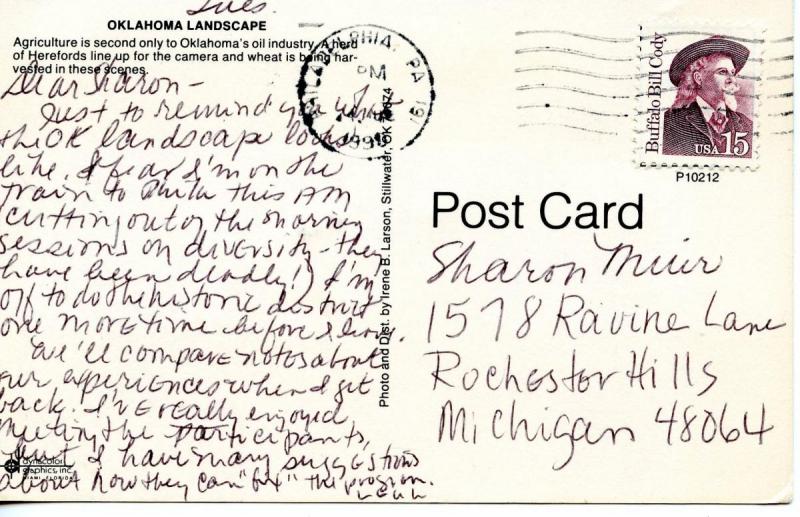 Tues.
OKLAHOMA LANDSCAPE
Agriculture is second only to Oklahoma's oil industry. A herd
of Herefords line up for the camera and wheat is being har-
vested in these scenes.
Dear Sharon -
Just to remind you what
the OK landscape looks
like. I fear I'm on the
train to Phila this AM
cutting out of the morning
sessions on diversity - they
have been deadly! I'm
off to do the historic district
one more time before I leave.
We'll compare notes about
our experiences when I get
back. I've really enjoyed
meeting the participants,
but I have many suggestions
about how they can "fix" the program.
dynacolor
graphics, inc.
MIAMI, FLORIDA
Photo and Dist. by Irene B. Larson, Stillwater, OK 74074
PHILADELPHIA, PA 191
PM
1991
Buffalo Bill Cody
USA 15
P10212
Post Card
Sharon Muir
1578 Ravine Lane
Rochester Hills
Michigan 48064